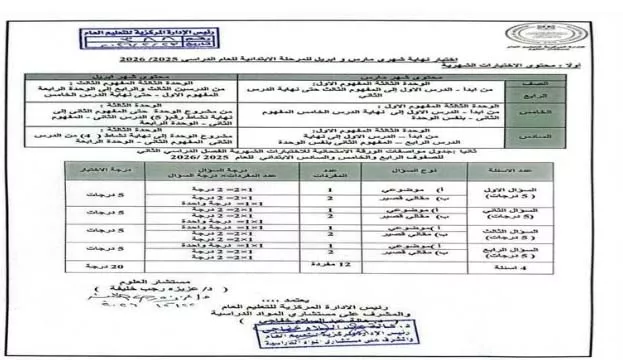 رئيس الإدارة المركزية للتعليم العام
اختبار نهاية شهرى مارس و ابريل للمرحلة الابتدائية للعام الدراسى 2025/ 2026
أولا : محتوى الاختبارات الشهرية
الصف
محتوى شهر مارس
محتوى شهر ابريل
الرابع
الوحدة الثالثة المفهوم الاول:
من ابدا - الدرس الاول إلى المفهوم الثالث حتى نهاية الدرس الثاني
الوحدة الثالثة المفهوم الثالث :
من الدرسين الثالث والرابع إلى الوحدة الرابعة
المفهوم الاول - حتى نهاية الدرس الخامس
الخامس
الوحدة الثالثة المفهوم الاول :
من ابدا - الدرس الاول إلى نهاية الدرس الخامس المفهوم
الثاني - بنفس الوحدة
الوحدة الثالثة :
من مشروع الوحدة حتى المفهوم الثاني إلى
نهاية نشاط رقم (5) الدرس الثاني - المفهوم
الثاني - الوحدة الرابعة
السادس
الوحدة الثالثة المفهوم الاول:
من ابدا – الدرس الاول إلى نهاية
الدرس الرابع – المفهوم الثاني بنفس الوحدة
الوحدة الثالثة :
مشروع الوحدة إلى نهاية نشاط ( 4) من الدرس
الثاني المفهوم الثاني - الوحدة الرابعة
ثانيا :جدول مواصفات الورقة الامتحانية للاختبارات الشهرية الفصل الدراسي الثاني
للصفوف الرابع والخامس والسادس الابتدائي للعام 2025 /2026
عدد الاسئلة
نوع السؤال
عدد المفردات
درجة السؤال
عدد المفردات× درجة السؤال
درجة الاختبار
السؤال الاول
( 5 درجات)
أ) موضوعي
ب) مقالي قصير
1
2
1×2= 2 درجة
5 درجات
السؤال الثاني
(5 درجات)
أ) موضوعي
ب) مقالي قصير
1
2
1×1= درجة واحدة
1×2= 2 درجة
5 درجات
السؤال الثالث
( 5 درجات)
أ )موضوعي
ب) مقالي قصير
1
2
1×1= درجة واحدة
1×2= 2 درجة
5 درجات
السؤال الرابع
(5 درجات)
أ )موضوعي
ب) مقالي قصير
1
2
1×1= درجة واحدة
1×2= 2 درجة
5 درجات
4 اسئلة
12 مفردة
20 درجة
مستشار العلوم
( د/ عزيزه رجب خليفة )
يعتمد ....
رئيس الإدارة المركزية للتعليم العام
والمشرف على مستشاري المواد الدراسية
رئيس الإدارة المركزية للتعليم العام
والمشرف على مستشاري المواد الدراسية